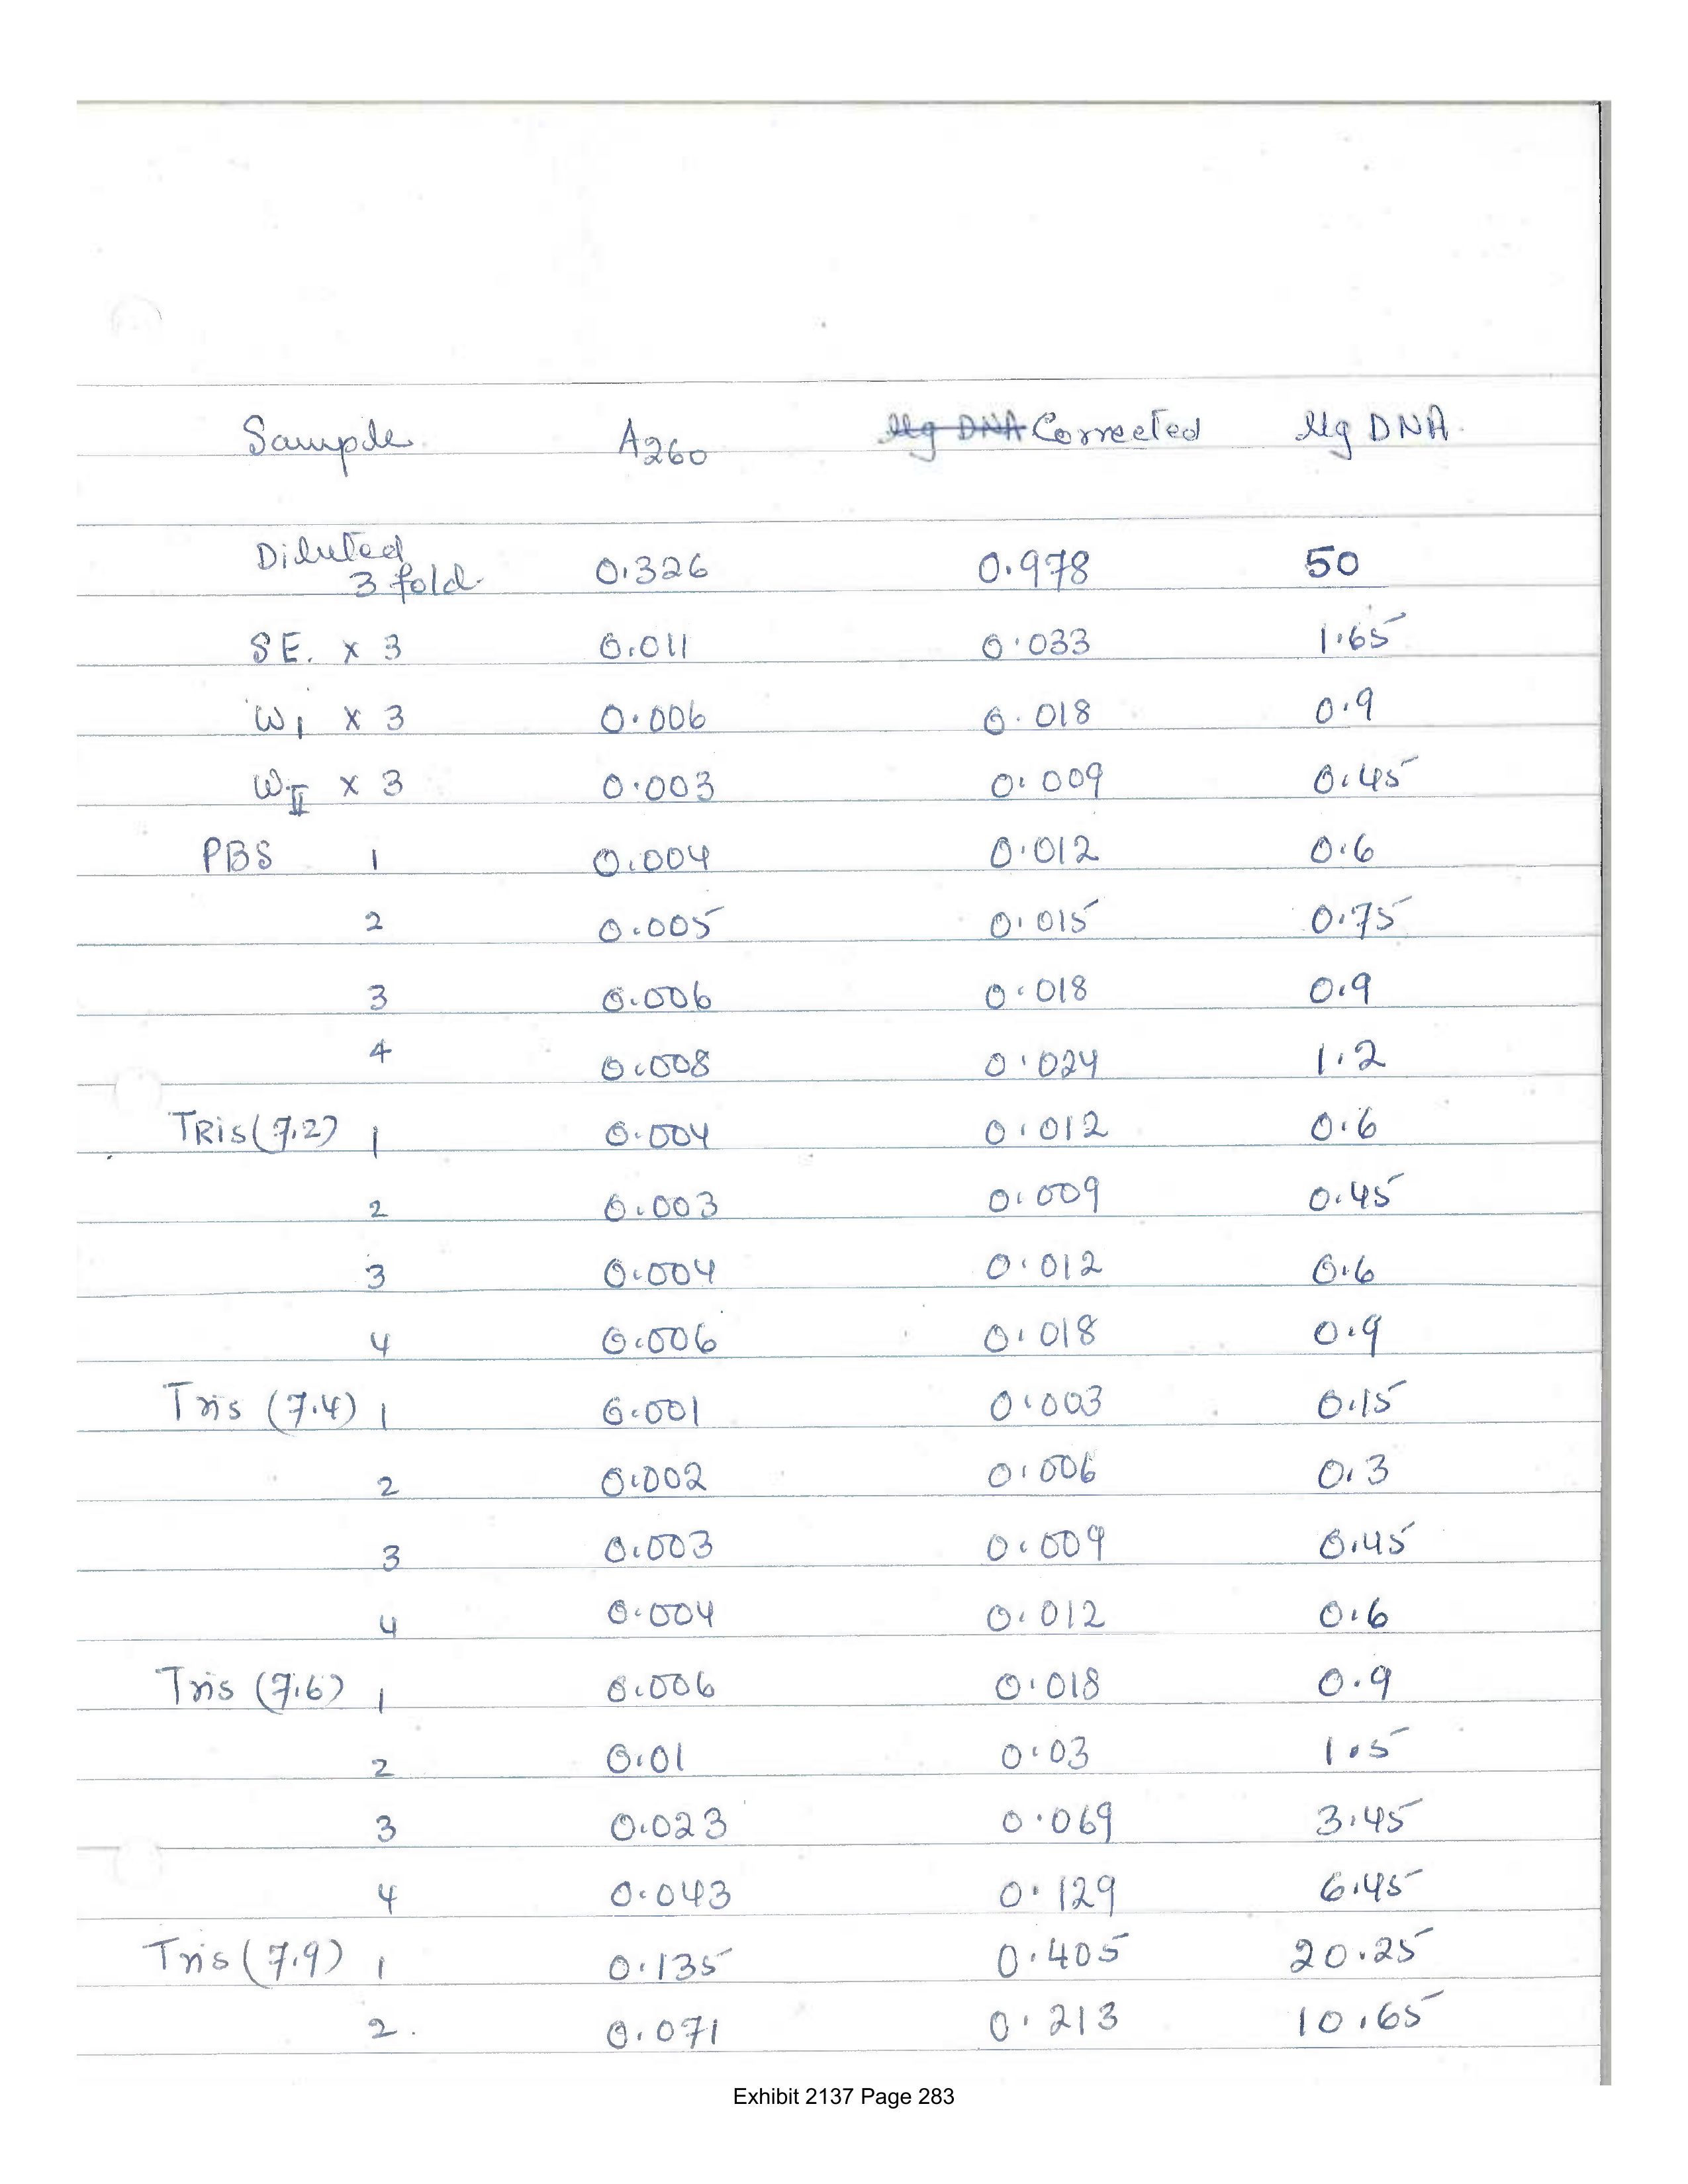 Sample A260 µg DNA Corrected µg DNA.
Diluted
3 fold. 0.326 0.978 50
SE. x 3 0.011 0.033 1.65
WI x 3 0.006 0.018 0.9
WII x 3 0.003 0.009 0.45
PBS 1 0.004 0.012 0.6
2 0.005 0.015 0.75
3 0.006 0.018 0.9
4 0.008 0.024 1.2
TRis (7.2) 1 0.004 0.012 0.6
2 0.003 0.009 0.45
3 0.004 0.012 0.6
4 0.006 0.018 0.9
Tris (7.4) 1 0.001 0.003 0.15
2 0.002 0.006 0.3
3 0.003 0.009 0.45
4 0.004 0.012 0.6
Tris (7.6) 1 0.006 0.018 0.9
2 0.01 0.03 1.5
3 0.023 0.069 3.45
4 0.043 0.129 6.45
Tris (7.9) 1 0.135 0.405 20.25
2. 0.071 0.213 10.65
Exhibit 2137 Page 283